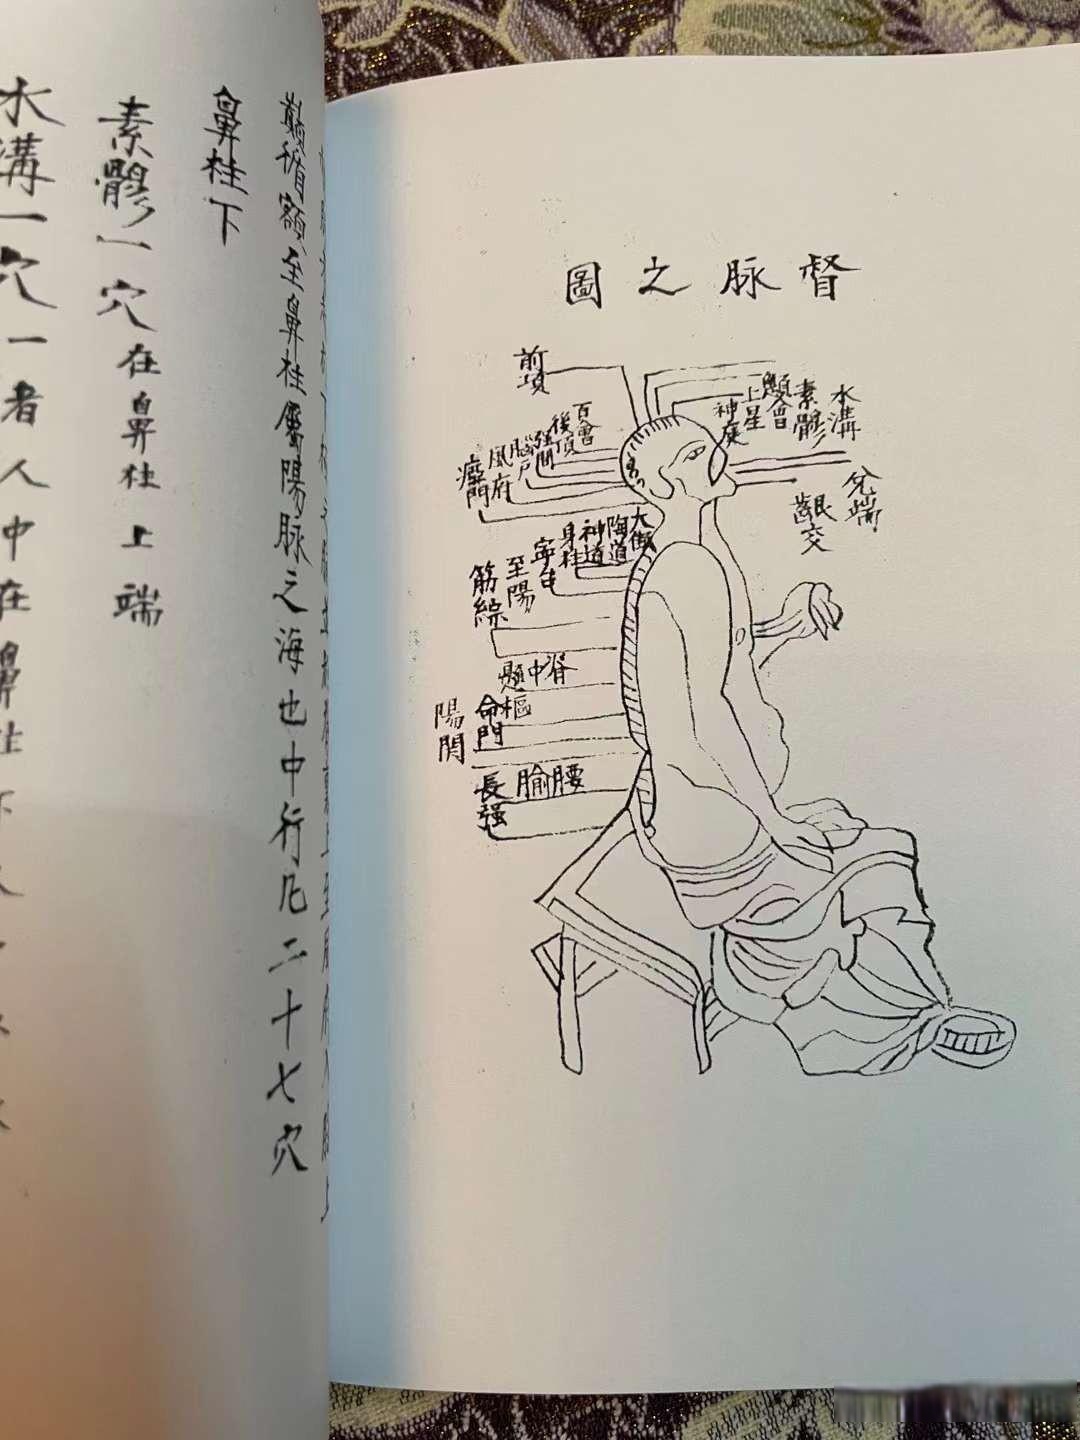 督脉之圖
前項
神庭
上星
顖會
素髎
水溝
兌端
齦交
百會
後頂
强間
腦戶
風府
瘂門
陶道
神道
身柱
至陽
筋綜
脊中
懸樞
命門
陽関
腰腧
長强
巔循額至鼻柱屬陽脉之海也中行凡二十七穴
鼻柱下
素髎一穴在鼻柱上端
水溝一穴一者人中在鼻柱下